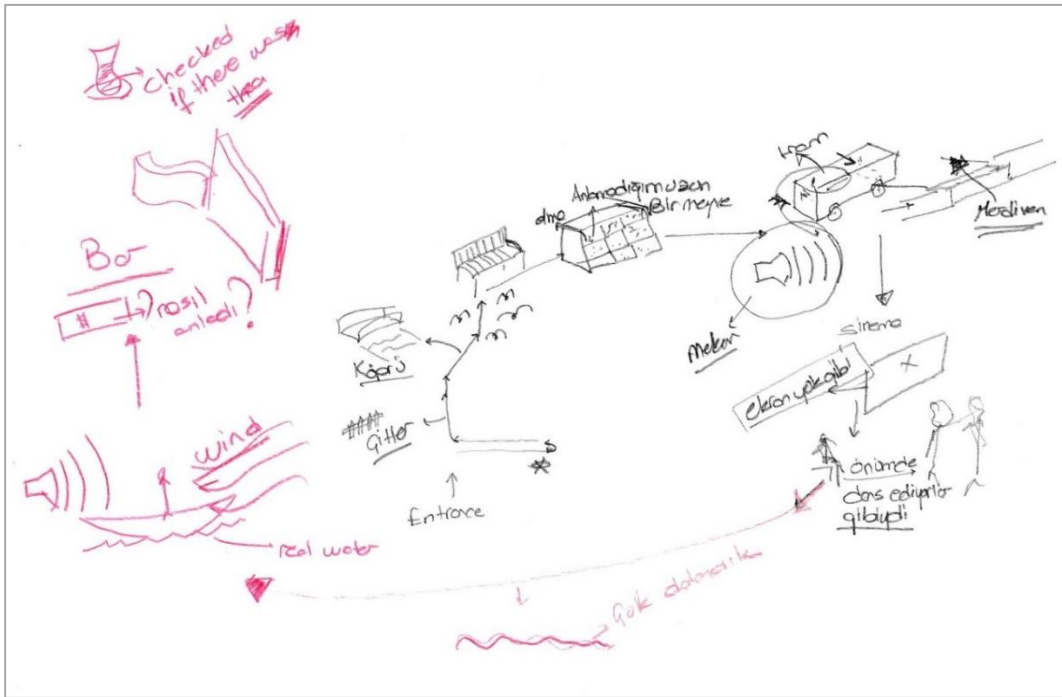 checked
if there was
thea
Bar
nasıl
anladı?
wind
real water
Entrance
Gitler
Köprü
elma
Anlamadığım uzun
Bir meyve
tram
Merdiven
Mekan
sinema
ekran yok gibi
önümde
dans ediyorlar
gibiydi
Çok dolamerik